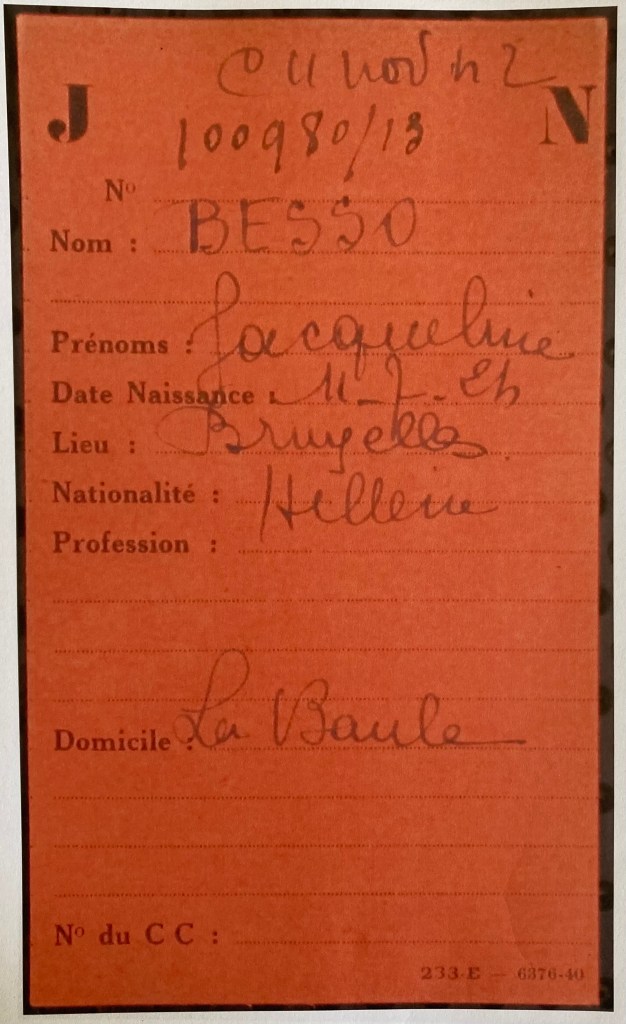 C 11 nov 42
J N
100980/13
No
Nom : BESSO
Prénoms : Jacqueline
Date Naissance : 11-7-24
Lieu : Bruxelles
Nationalité : Hellène
Profession :
Domicile : La Baule
No du C C :
233-E — 6376-40